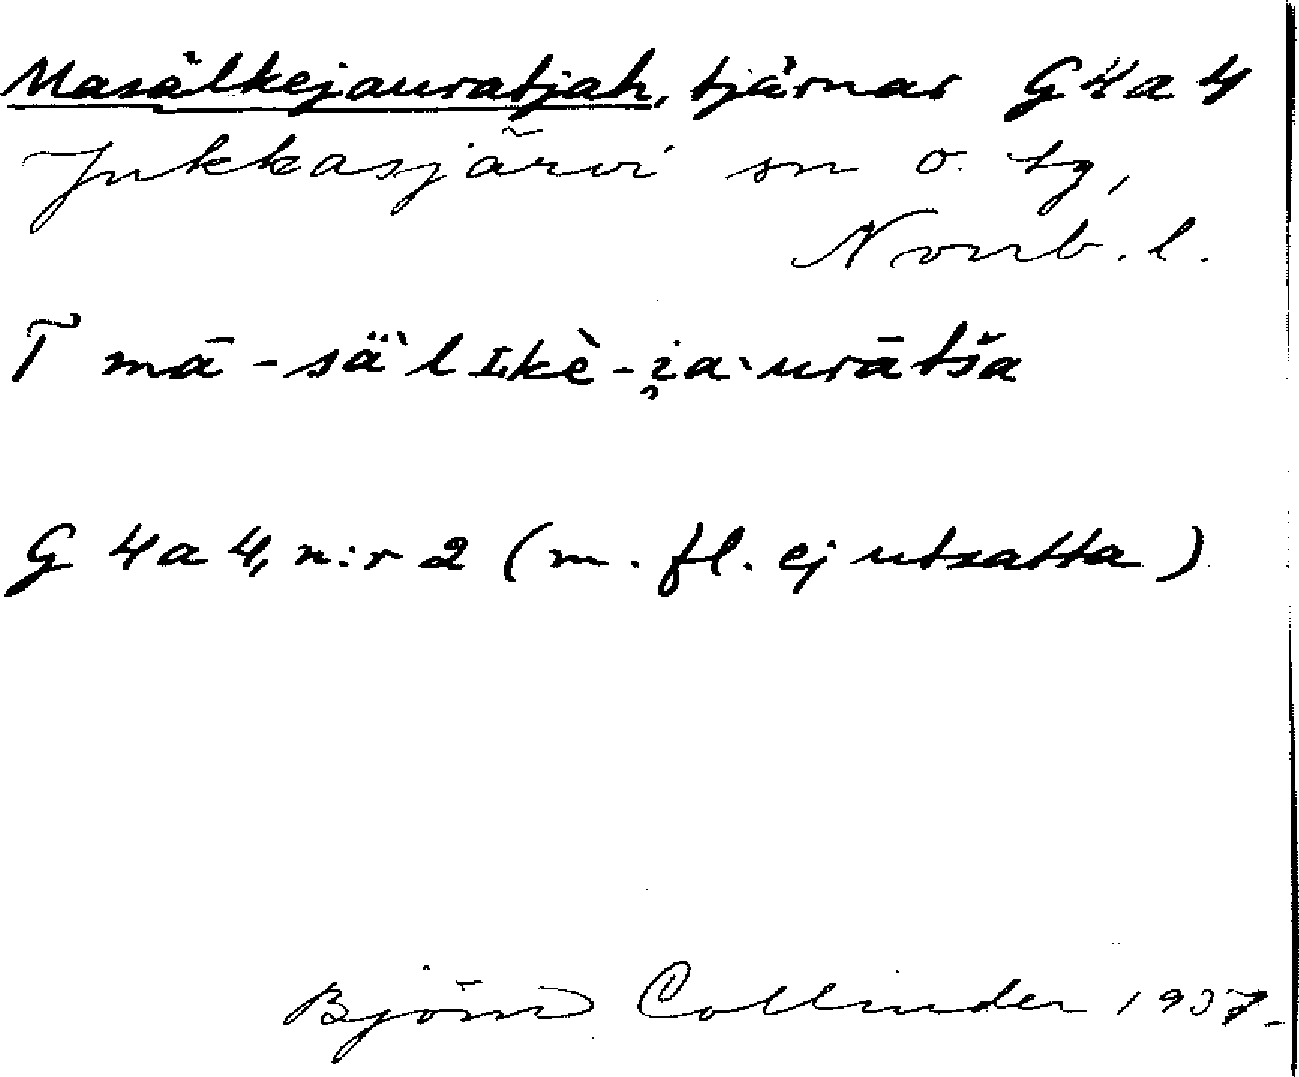 Masälkejauratjah, tjärnar G4a4
Jukkasjärvi sn o. tg,
Norrb. l.
T mā-sä̀lʟkè-i̯a·urātša
G 4a4, n:r 2 (m. fl. ej utsatta)
Björn Collinder 1937.